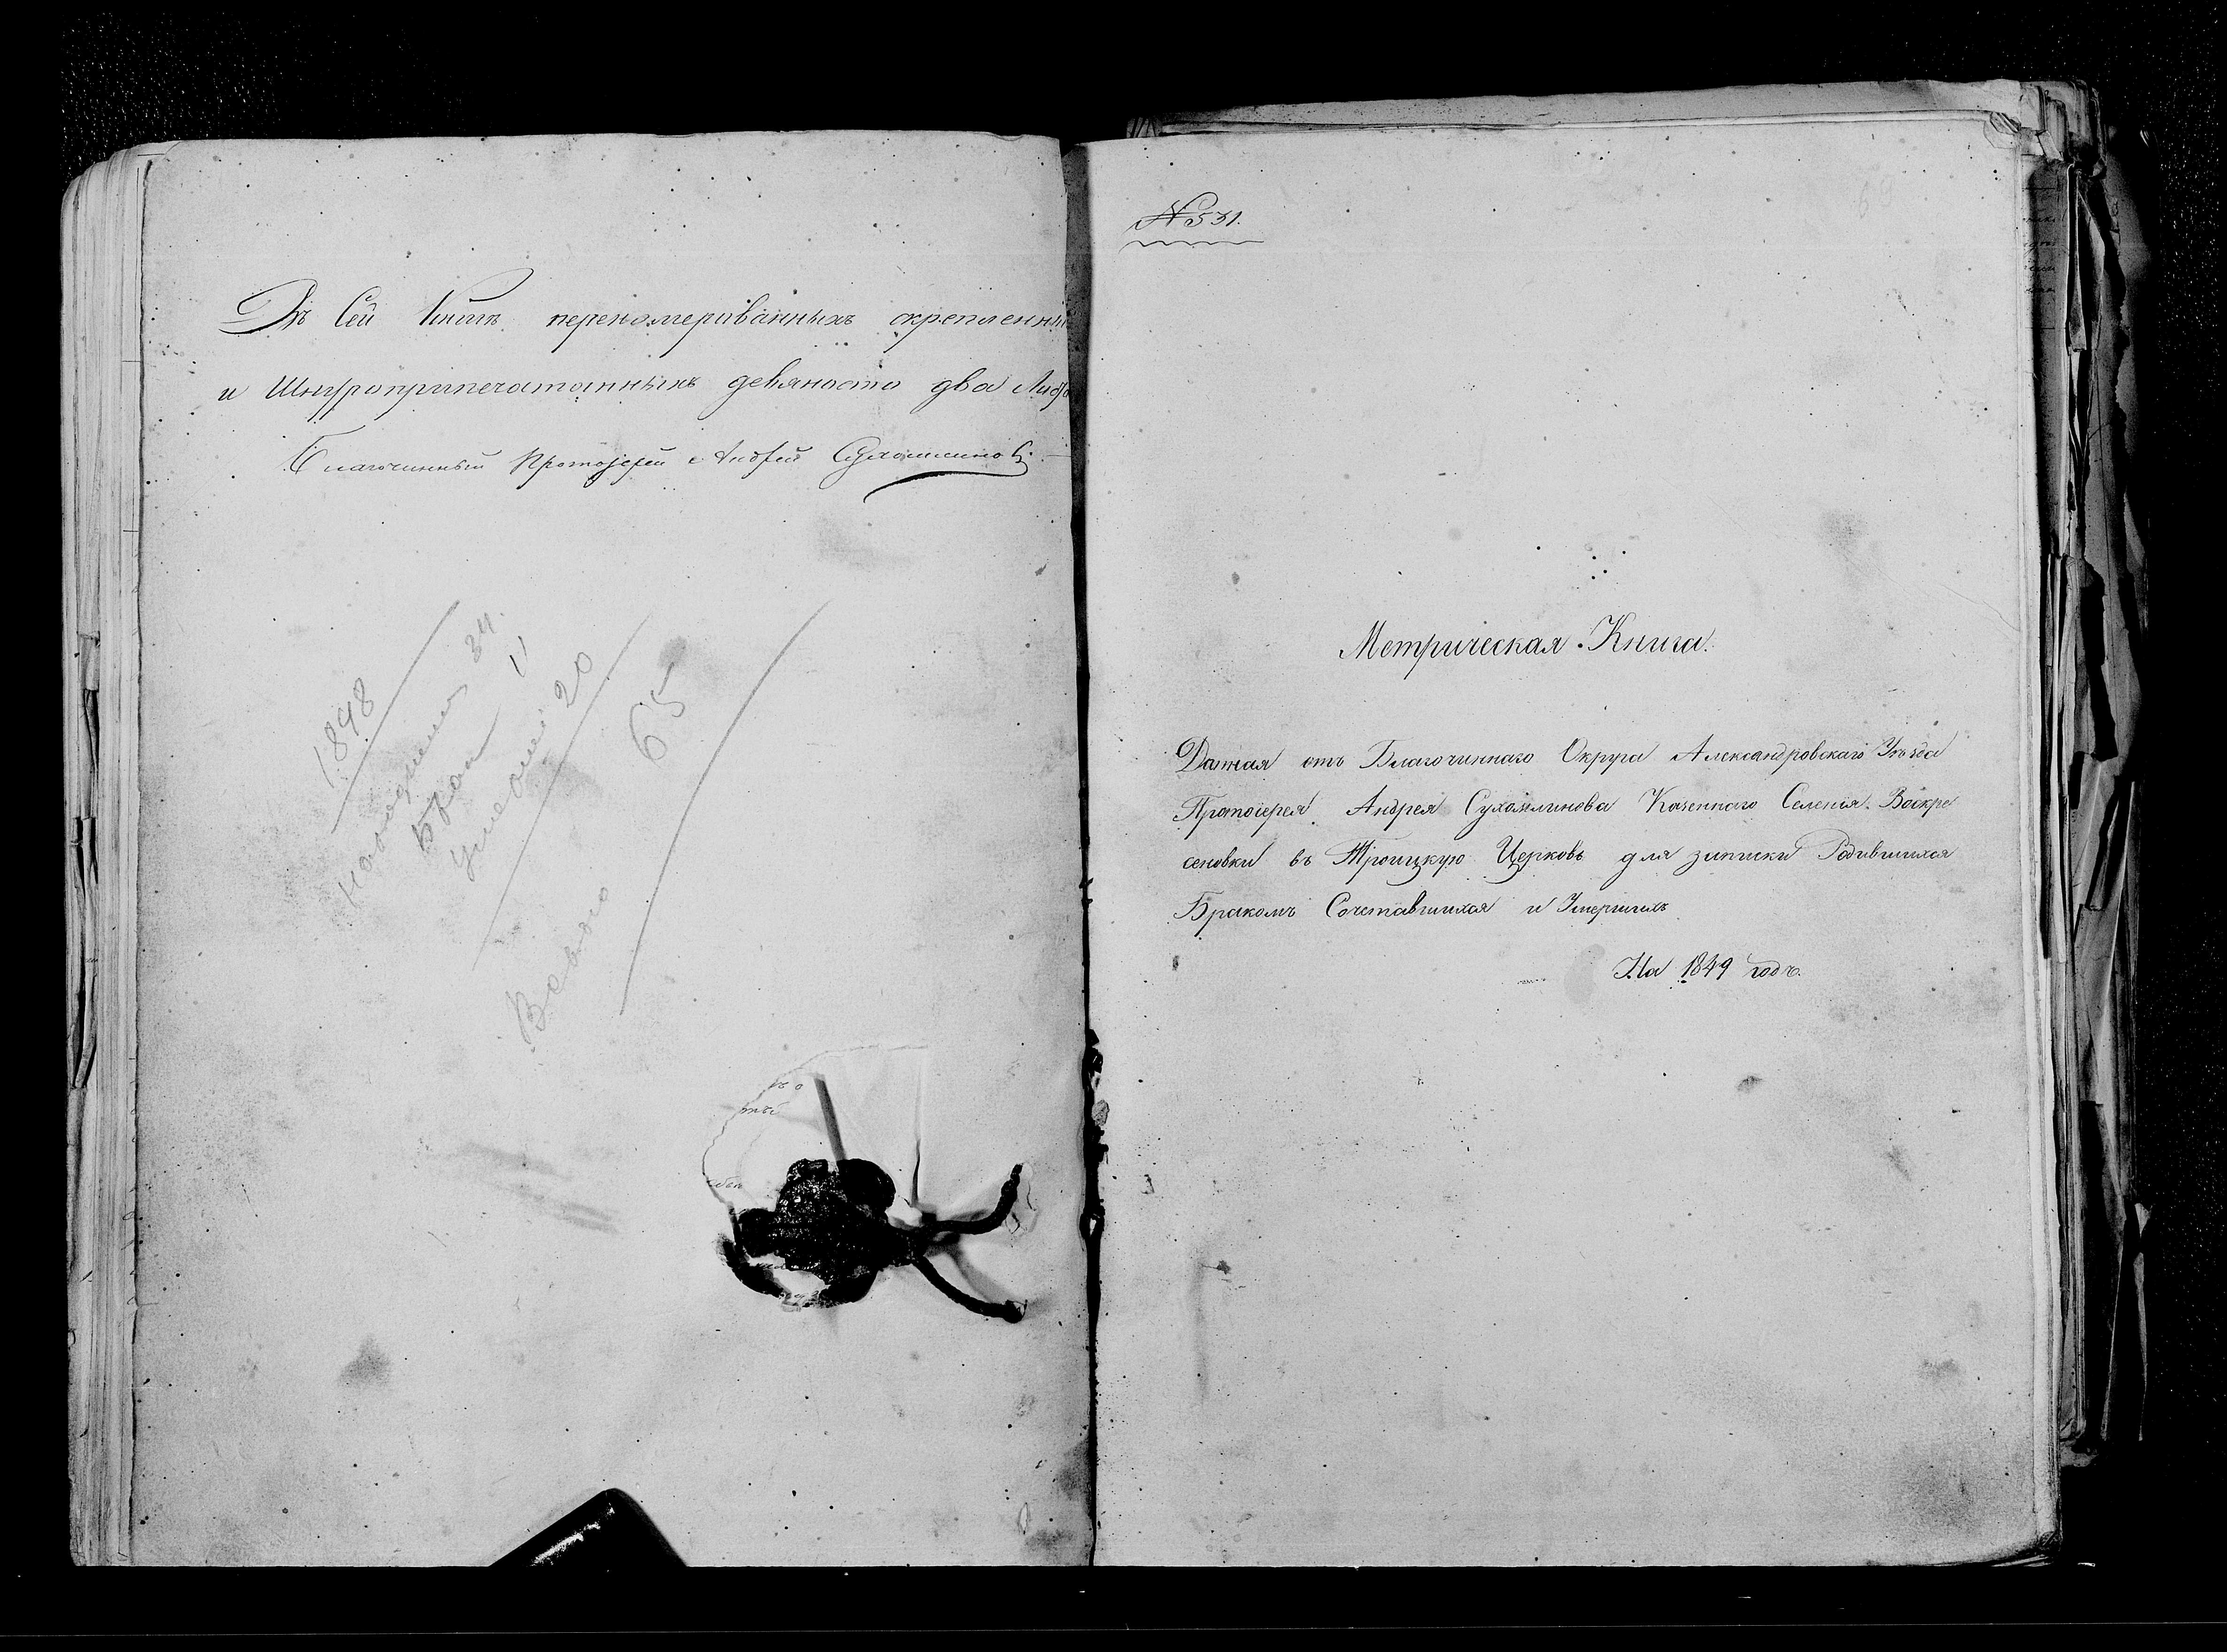 Въ Сей Книгѣ перенумериванныхъ скрепленны
и Шнуроприпечатанныхъ девяносто два Лист
Благочинный Протоіерей Андрей Сухомлиновъ.
1848
34.
Брак 11
умерших 20
Всього 65
№ 531.
Метрическая Книга.
Данная отъ Благочиннаго Округа Александровскаго Уѣзда
Протоіерея Андрея Сухомлинова Казеннаго Селенія Воскре
сеновки въ Троицкую Церковь для записки Родившихся
Бракомъ Сочетавшихся и Умершихъ
На 1849 годъ.